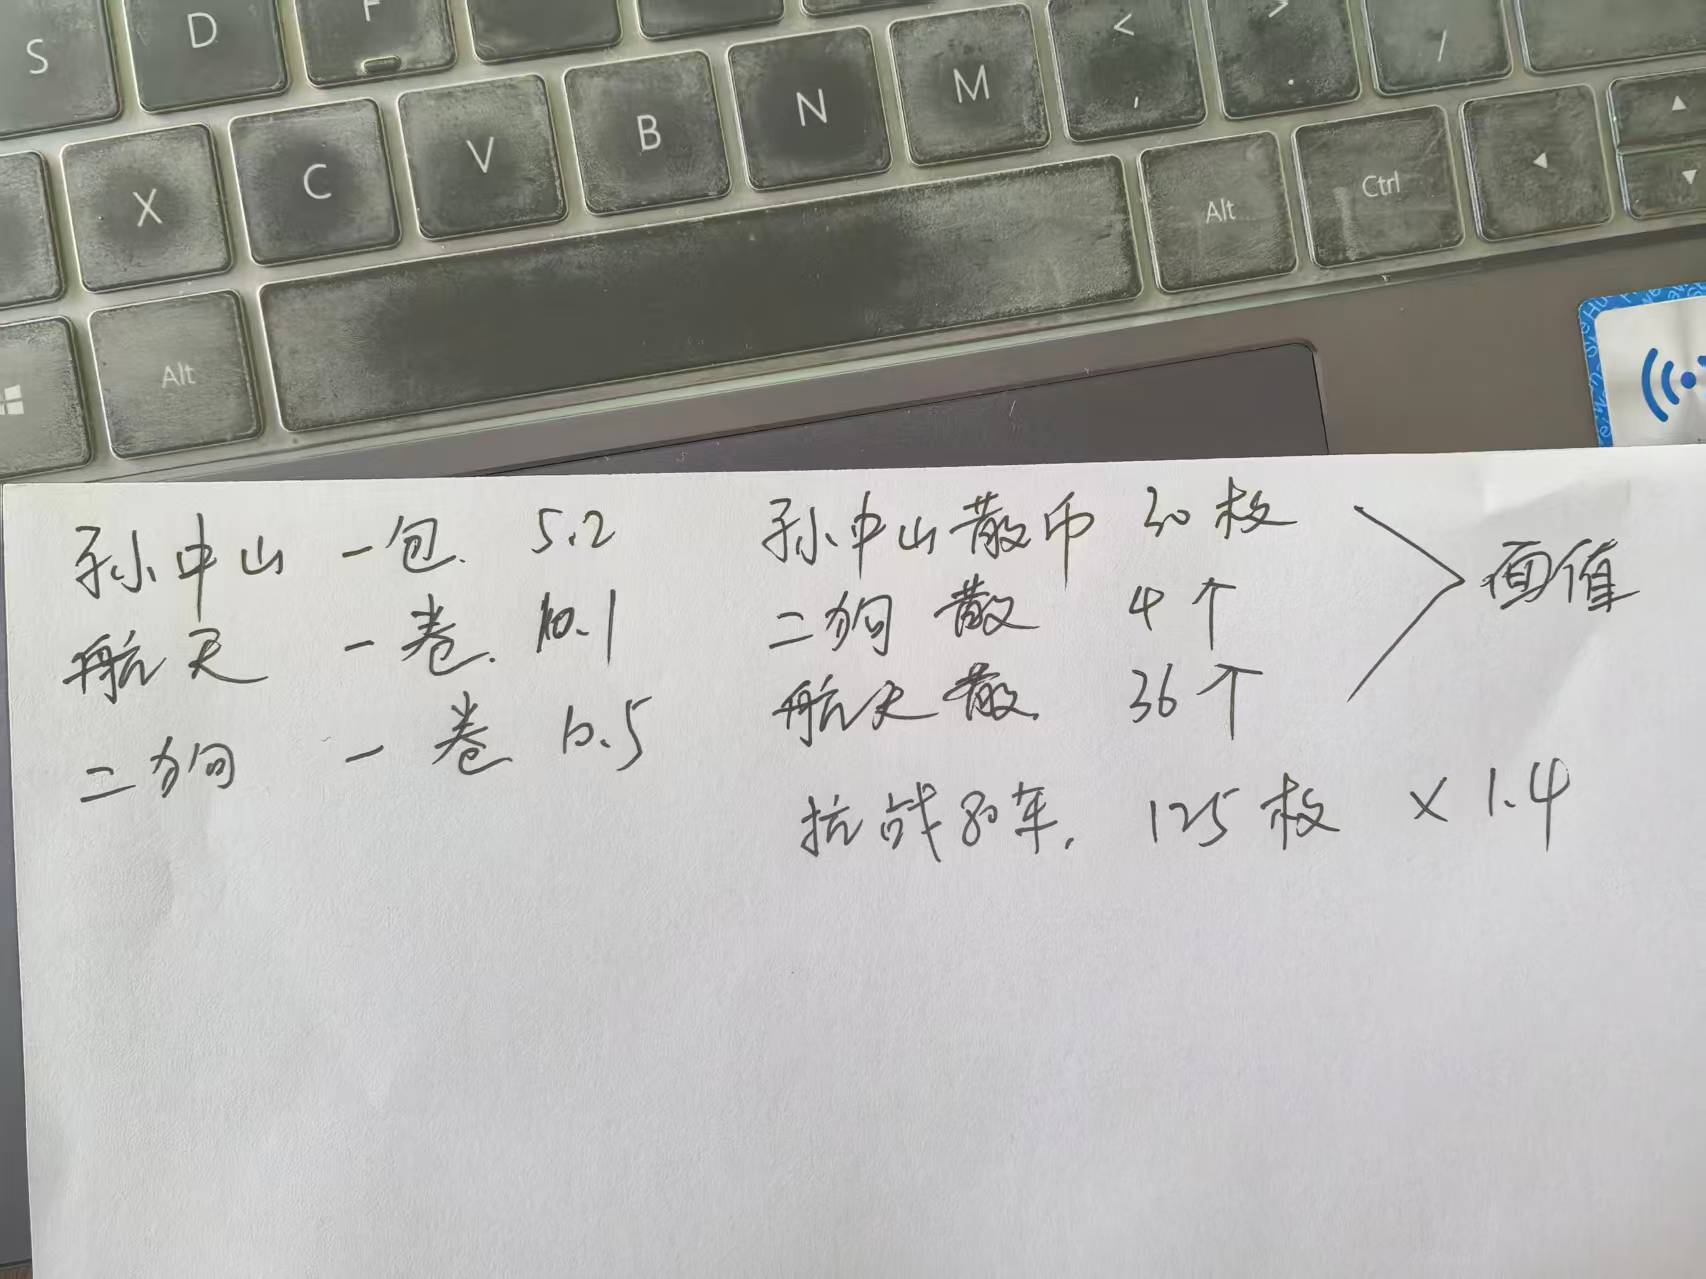 S D F
X C V B N M < , > . / ▲
Alt Alt Ctrl ◄ ▼
孙中山 一包. 5.2
航天 一卷. 10.1
二狗 一卷 10.5
孙中山散币 30枚
二狗散 4个
航天散. 36个
面值
抗战80年. 125枚 × 1.4